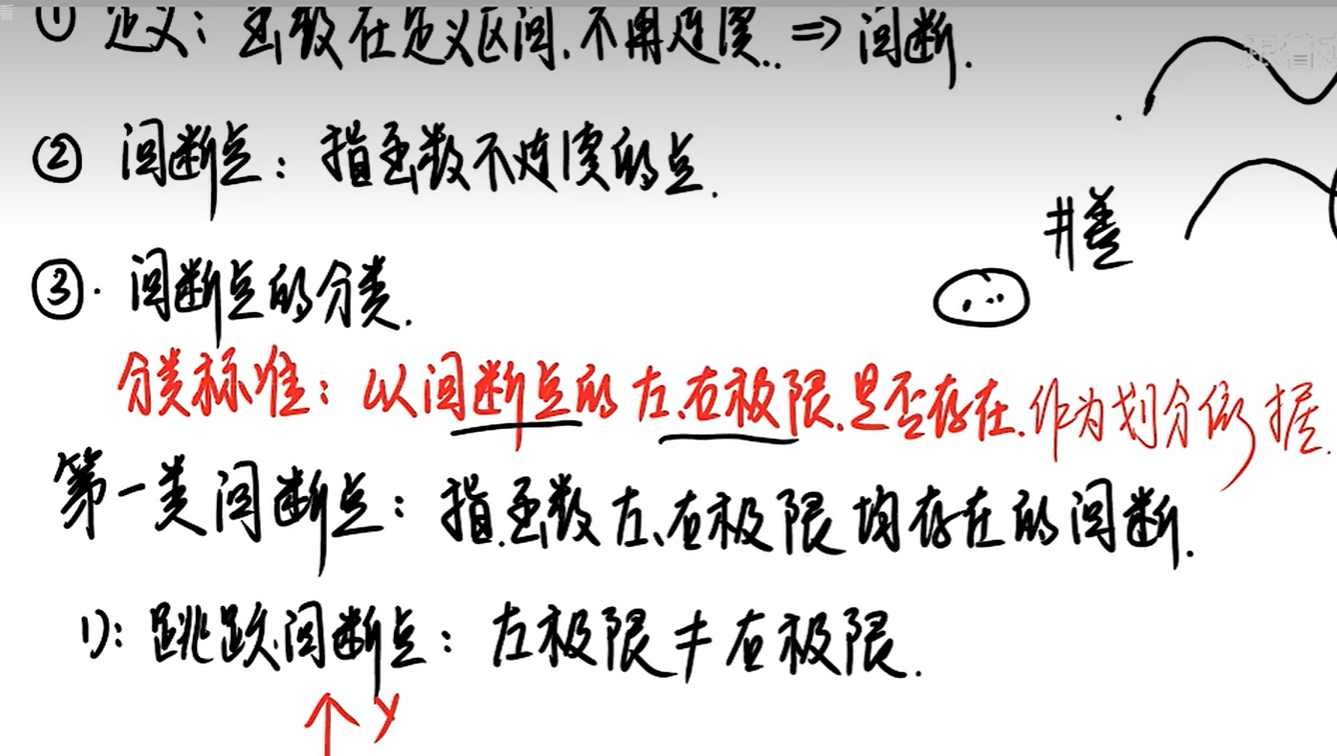 ① 定义：函数在定义区间.不再连续.. ⇒ 间断.
② 间断点：指函数不连续的点.
井盖
③. 间断点的分类.
分类标准：以间断点的左、右极限.是否存在.作为划分依据.
第一类间断点：指.函数左、右极限均存在的间断.
1)：跳跃.间断点：左极限≠右极限.
y